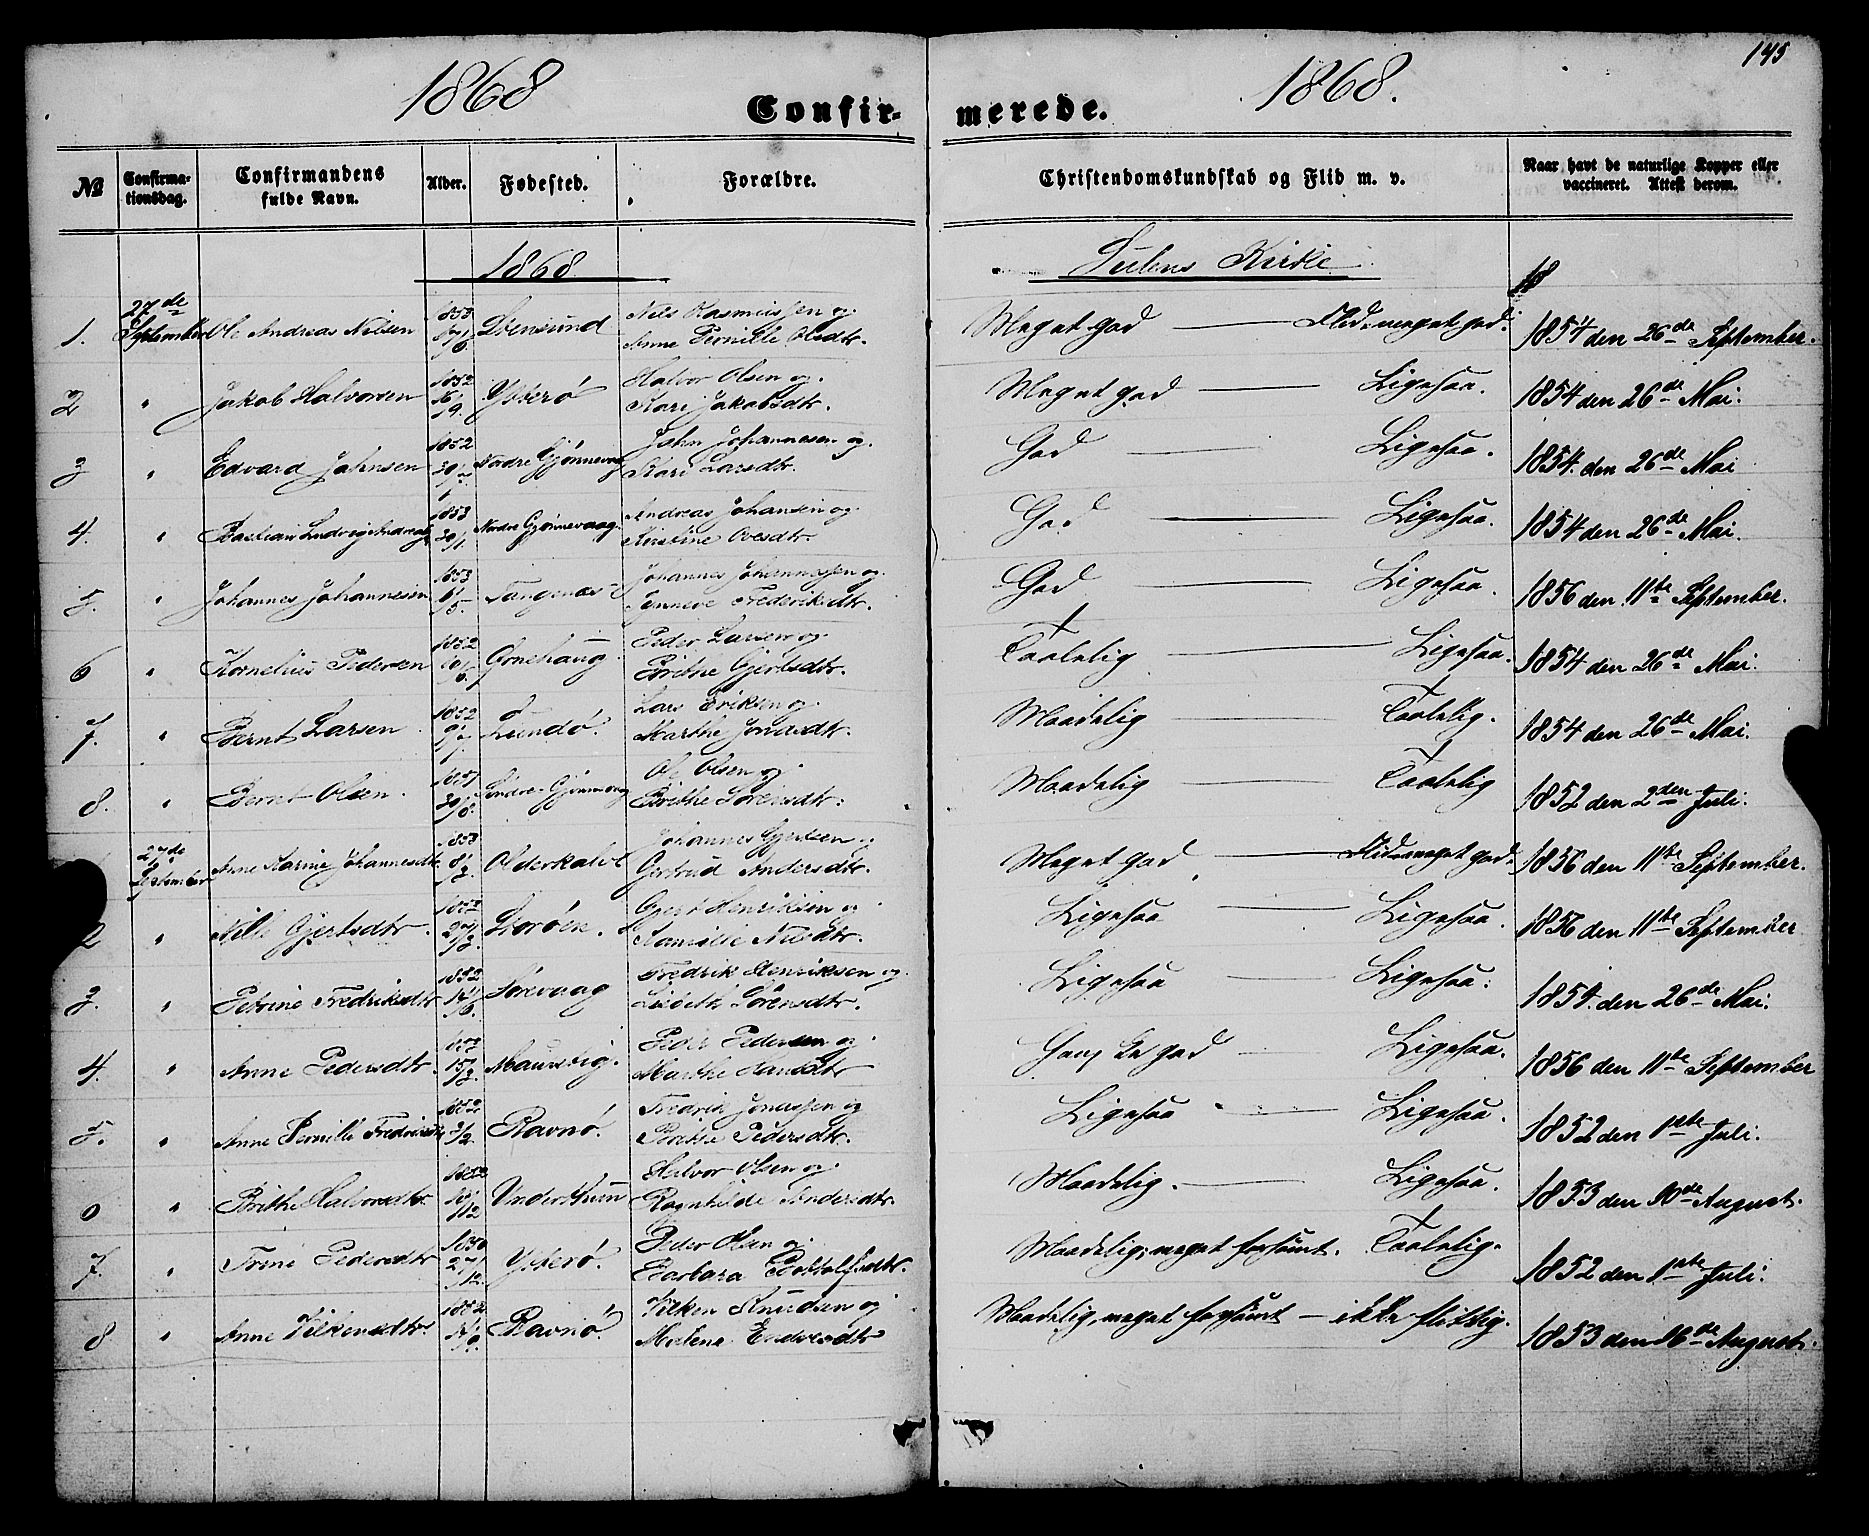 145
1868 1868.
Confir- merede.
№ Confirma-tionsdag. Confirmandens fulde Navn. Alder. Fødested. Forældre. Christendomskundskab og Flid m. v. Naar havt de naturlige Kopper eller vaccineret. Attest derom.
1868 Sulens Kirke
1. 27de September Ole Andreas Nilsen 1853 Nils Rasmussen og Anne Pernille Olsdtr. Meget god — Flid: meget god. 1854 den 26de September.
2 " Jakob Halvorsen 1852 Ytterö Halvor Olsen og Kari Jakobsdtr. Meget god — Ligesaa. 1854 den 26de Mai.
3 " Edvard Johnsen 1852 Nordre Gjønnevaag John Johannesen og Kari Larsdtr. God — Ligesaa. 1854. den 26de Mai
4. " Bastian Ludvig 1853 30/1. Nordre Gjønnevaag. Andreas Johansen og Kirstine Ovesdtr. God — Ligesaa. 1854 den 26de Mai.
5. " Johannes Johannesen 1853 6/5. Tangenæs Johannes Johannessen og Frederiksdtr. God — Ligesaa. 1856 den 11te September.
6 " Kornelius Pedersen 1852 Ørnehaug Peder Larsen og Brithe Gjertsdtr. Taalelig — Ligesaa. 1854 den 26de Mai.
7. " Bernt Larsen 1852 Lars Eriksen og Marthe Jonasdtr. Maadelig — Taalelig. 1854 den 26de Mai.
8. " Bernt Olsen. 1851 30/8. Søndre Gjønnevaag Ole Olsen og Brithe Sørensdtr. Maadelig — Taalelig 1852 den 2den Juli.
27de September Anne Karine Johannesdtr 1853 Olderkalv Johannes Gjertsen og Gertrud Andersdtr. Meget god — Flid: meget god. 1856 den 11te September.
2 " Nille Gjertsdtr. 1853 Storöen. Gjert Henriksen og Nilsdtr. Ligesaa — Ligesaa. 1856 den 11te September
3. " Petrine Fredriksdtr 1852 Sørevaag Fredrik Henriksen og Lisbeth Sørensdtr. Ligesaa — Ligesaa. 1854. den 26de Mai.
4. " Anne Pedersdtr. 1853 15/3. Peder Pedersen og Marthe Hansdtr Ganske god — Ligesaa. 1856 den 11te September
5. " Anne Pernille Fredriksdtr 1852 3/2. Ravnö. Fredrik Jonassen og Brithe Pedersdtr. Ligesaa — Ligesaa. 1852 den 1ste Juli.
6 " Brithe Halvorsdtr. 1852 Halvor Olsen og Ragnhilde Andersdtr. Maadelig. — Ligesaa. 1853 den 10de August.
7. " Trine Pedersdtr 1850 27/12. Ytterö. Peder Olsen og Barbara Botholfsdtr. Maadelig; meget forsömt. Taalelig. 1852 den 1ste Juli.
8 " Anne Vilkensdtr. Ravnö. Vilken Knudsen og Malene Endresdtr Maadelig, meget forsömt — ikke flittig. 1853 den 16de August.